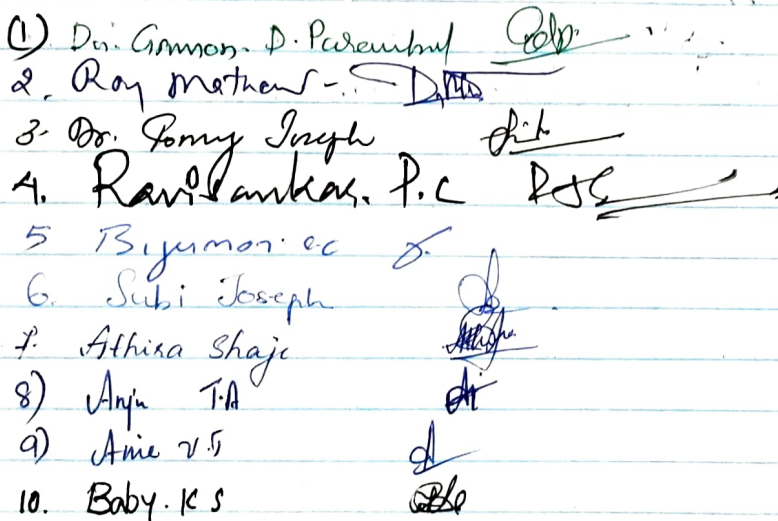 (1) Dr. Gammon. D. Parambul
2. Roy Mathew -
3. Dr. Tomy Joseph
4. Ravisankar. P.C
5 Bijumon. e.c
6. Subi Joseph
7. Athira Shaji
8) Anju T.A
9) Amie V.J
10. Baby. K S